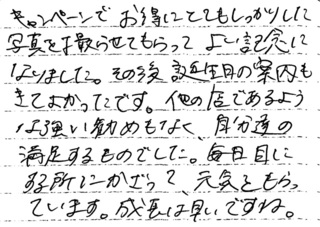 キャンペーンで お得にとてもしっかりした
写真を撮らせてもらって よい記念に
なりました。その後 誕生日の案内も
きてよかったです。他の店であるよう
な強い勧めもなく、自分達の
満足するものでした。毎日目に
する所にかざって、元気をもらっ
ています。成長は早いですね。